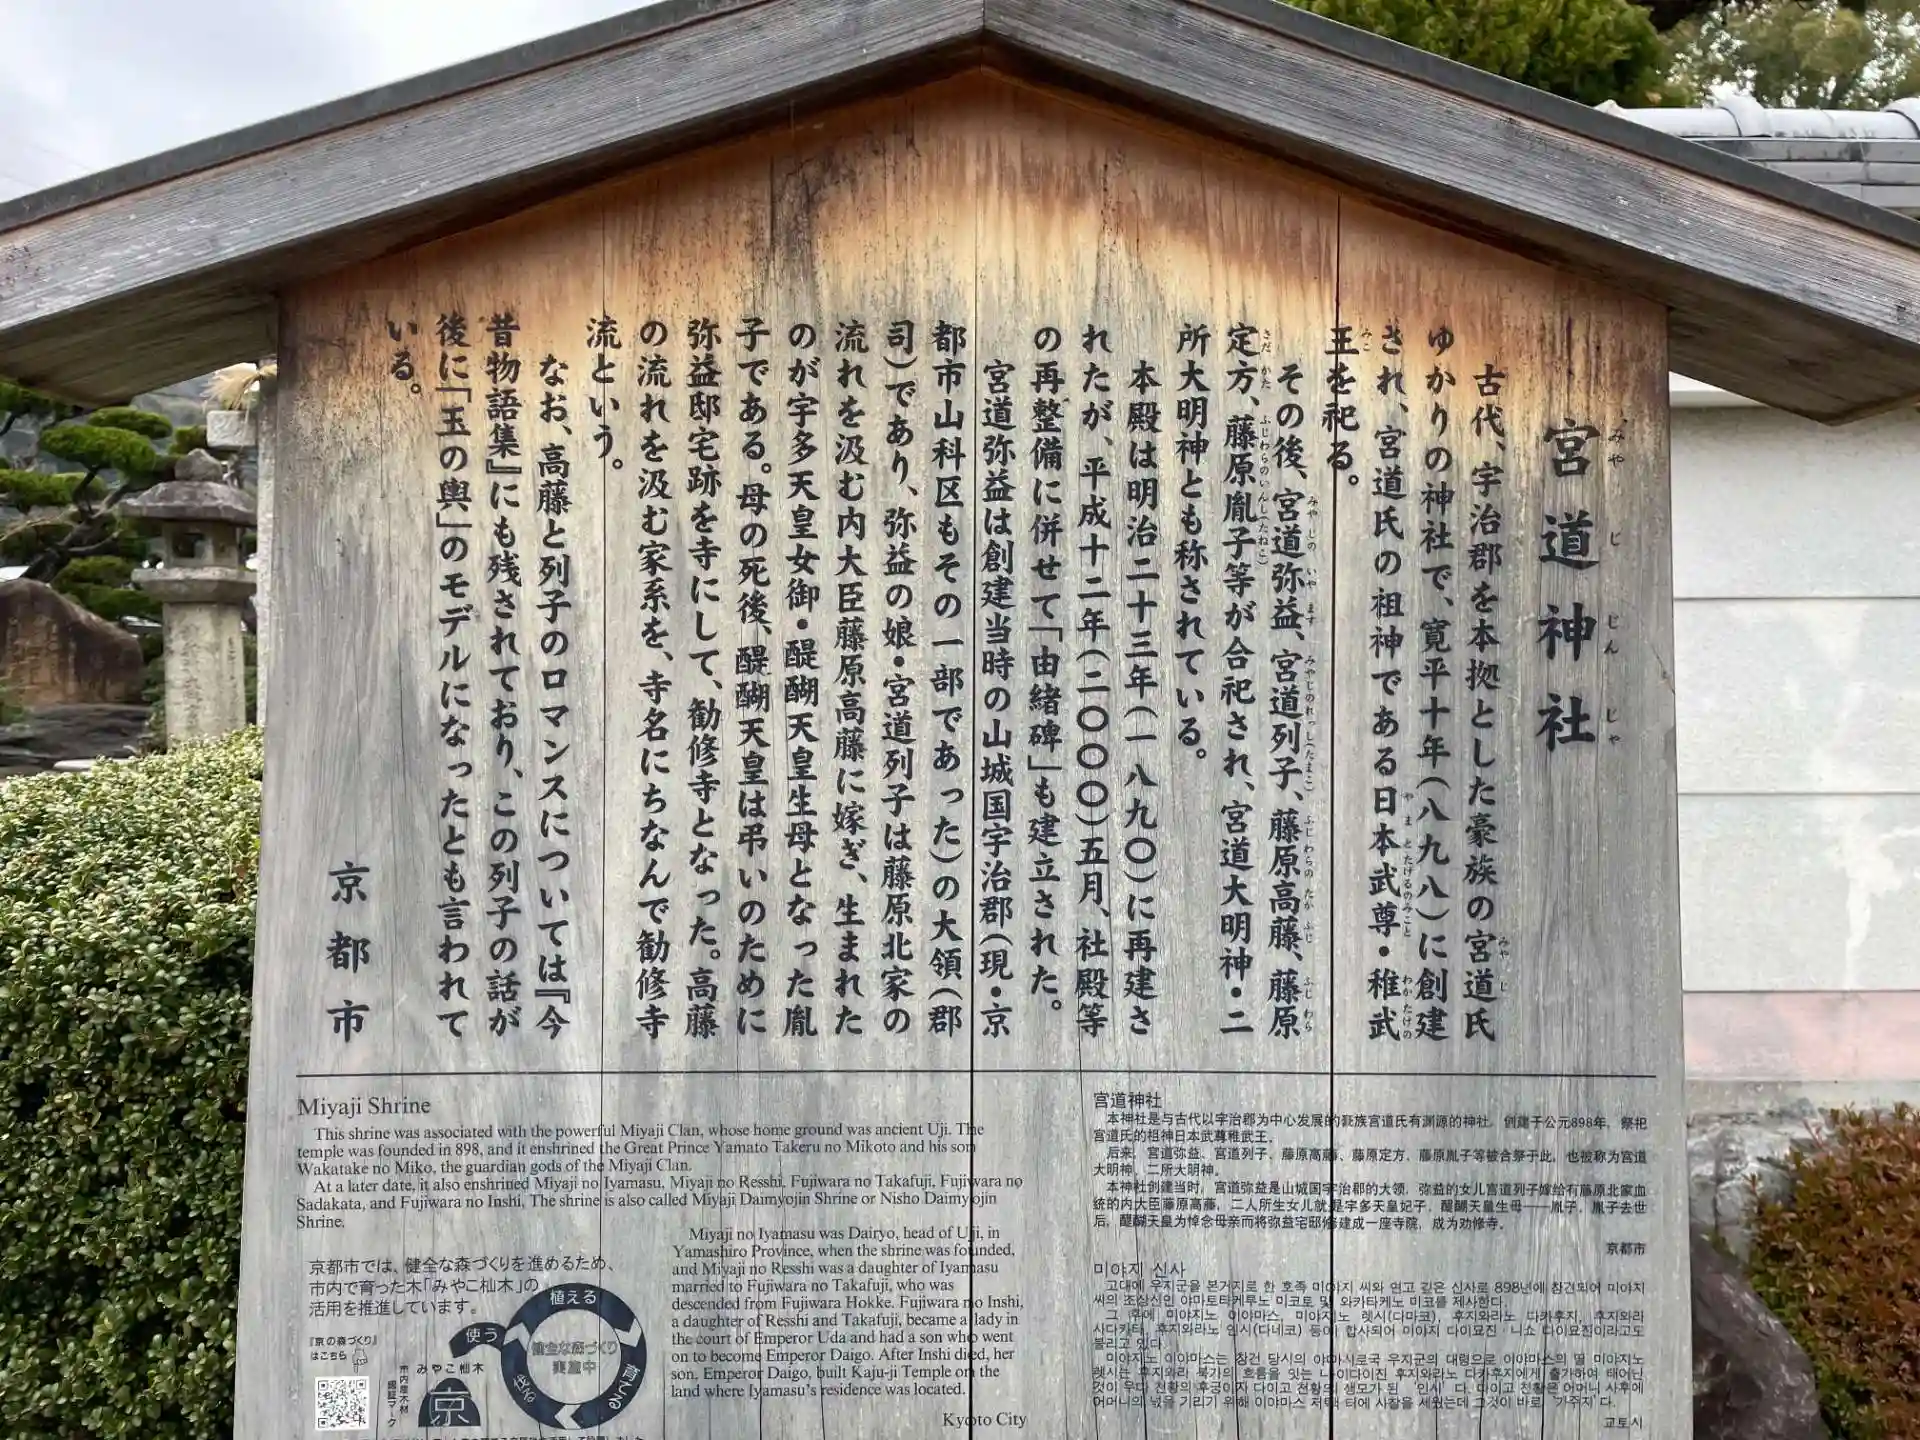 宮道神社
古代、宇治郡を本拠とした豪族の宮道氏
ゆかりの神社で、寛平十年（八九八）に創建
され、宮道氏の祖神である日本武尊・稚武
王を祀る。
その後、宮道弥益、宮道列子、藤原高藤、藤原
定方、藤原胤子等が合祀され、宮道大明神・二
所大明神とも称されている。
本殿は明治二十三年（一八九〇）に再建さ
れたが、平成十二年（二〇〇〇）五月、社殿等
の再整備に併せて「由緒碑」も建立された。
宮道弥益は創建当時の山城国宇治郡（現・京
都市山科区もその一部であった）の大領（郡
司）であり、弥益の娘・宮道列子は藤原北家の
流れを汲む内大臣藤原高藤に嫁ぎ、生まれた
のが宇多天皇女御・醍醐天皇生母となった胤
子である。母の死後、醍醐天皇は弔いのために
弥益邸宅跡を寺にして、勧修寺となった。高藤
の流れを汲む家系を、寺名にちなんで勧修寺
流という。
なお、高藤と列子のロマンスについては『今
昔物語集』にも残されており、この列子の話が
後に「玉の輿」のモデルになったとも言われて
いる。
京都市
Miyaji Shrine
This shrine was associated with the powerful Miyaji Clan, whose home ground was ancient Uji. The
temple was founded in 898, and it enshrined the Great Prince Yamato Takeru no Mikoto and his son
Wakatake no Miko, the guardian gods of the Miyaji Clan.
At a later date, it also enshrined Miyaji no Iyamasu, Miyaji no Resshi, Fujiwara no Takafuji, Fujiwara no
Sadakata, and Fujiwara no Inshi. The shrine is also called Miyaji Daimyojin Shrine or Nisho Daimyojin
Shrine.
Miyaji no Iyamasu was Dairyo, head of Uji, in
Yamashiro Province, when the shrine was founded,
and Miyaji no Resshi was a daughter of Iyamasu
married to Fujiwara no Takafuji, who was
descended from Fujiwara Hokke. Fujiwara no Inshi,
a daughter of Resshi and Takafuji, became a lady in
the court of Emperor Uda and had a son who went
on to become Emperor Daigo. After Inshi died, her
son, Emperor Daigo, built Kaju-ji Temple on the
land where Iyamasu's residence was located.
Kyoto City
京都市では、健全な森づくりを進めるため、
市内で育った木「みやこ杣木」の
活用を推進しています。
『京の森づくり』
はこちら
みやこ杣木
市内産木材
認証マーク
京
植える
育てる
伐る
使う
健全な森づくり
実施中
宫道神社
本神社是与古代以宇治郡为中心发展的豪族宫道氏有渊源的神社，创建于公元898年，祭祀
宫道氏的祖神日本武尊稚武王。
后来，宫道弥益、宫道列子、藤原高藤、藤原定方、藤原胤子等被合祭于此，也被称为宫道
大明神、二所大明神。
本神社创建当时，宫道弥益是山城国宇治郡的大领，弥益的女儿宫道列子嫁给有藤原北家血
统的内大臣藤原高藤，二人所生女儿就是宇多天皇妃子，醍醐天皇生母——胤子。胤子去世
后，醍醐天皇为悼念母亲而将弥益宅邸修建成一座寺院，成为劝修寺。
京都市
미야지 신사
고대에 우지군을 본거지로 한 호족 미야지 씨와 연고 깊은 신사로 898년에 창건되어 미야지
씨의 조상신인 야마토타케루노 미코토 및 와카타케노 미코를 제사한다.
그 후에 미야지노 이야마스, 미야지노 렛시(다마코), 후지와라노 다카후지, 후지와라
사다카타, 후지와라노 인시(다네코) 등이 합사되어 미야지 다이묘진·니쇼 다이묘진이라고도
불리고 있다.
미야지노 이야마스는 창건 당시의 야마시로국 우지군의 대령으로 이야마스의 딸 미야지노
렛시는 후지와라 북가의 흐름을 잇는 나이다이진 후지와라노 다카후지에게 출가하여 태어난
것이 우다 천황의 후궁이자 다이고 천황의 생모가 된 '인시' 다. 다이고 천황은 어머니 사후에
어머니의 넋을 기리기 위해 이야마스 저택 터에 사찰을 세웠는데 그것이 바로 '가주지' 다.
교토시